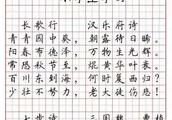 长歌行 汉乐府诗
青青园中葵，朝露待日晞。
阳春布德泽，万物生光辉。
常恐秋节至，焜黄华叶衰。
百川东到海，何时复西归？
少壮不努力，老大徒伤悲！
七步诗 三国 曹植